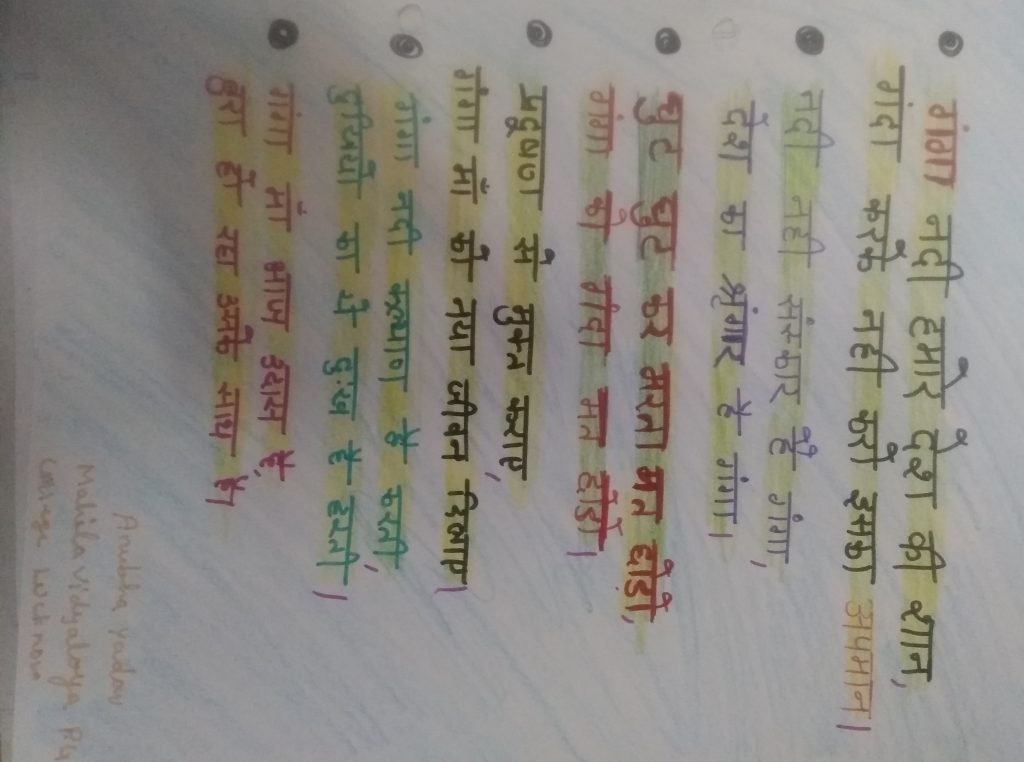 गंगा नदी हमारे देश की शान,
गंदा करके नही करो इसका अपमान।
नदी नही संस्कार है गंगा,
देश का श्रृंगार है गंगा।
घुट घुट कर मरता मत छोड़ो,
गंगा को गंदा मत छोड़ो।
प्रदूषण से मुक्त कराए,
गंगा माँ को नया जीवन दिलाए।
गंगा नदी कल्याण है करती,
दुखियों का ये दुःख है हरती।
गंगा माँ आज उदास है,
बुरा हो रहा उसके साथ है।
Yadav
Mahila Vidyalaya PG
College Lucknow